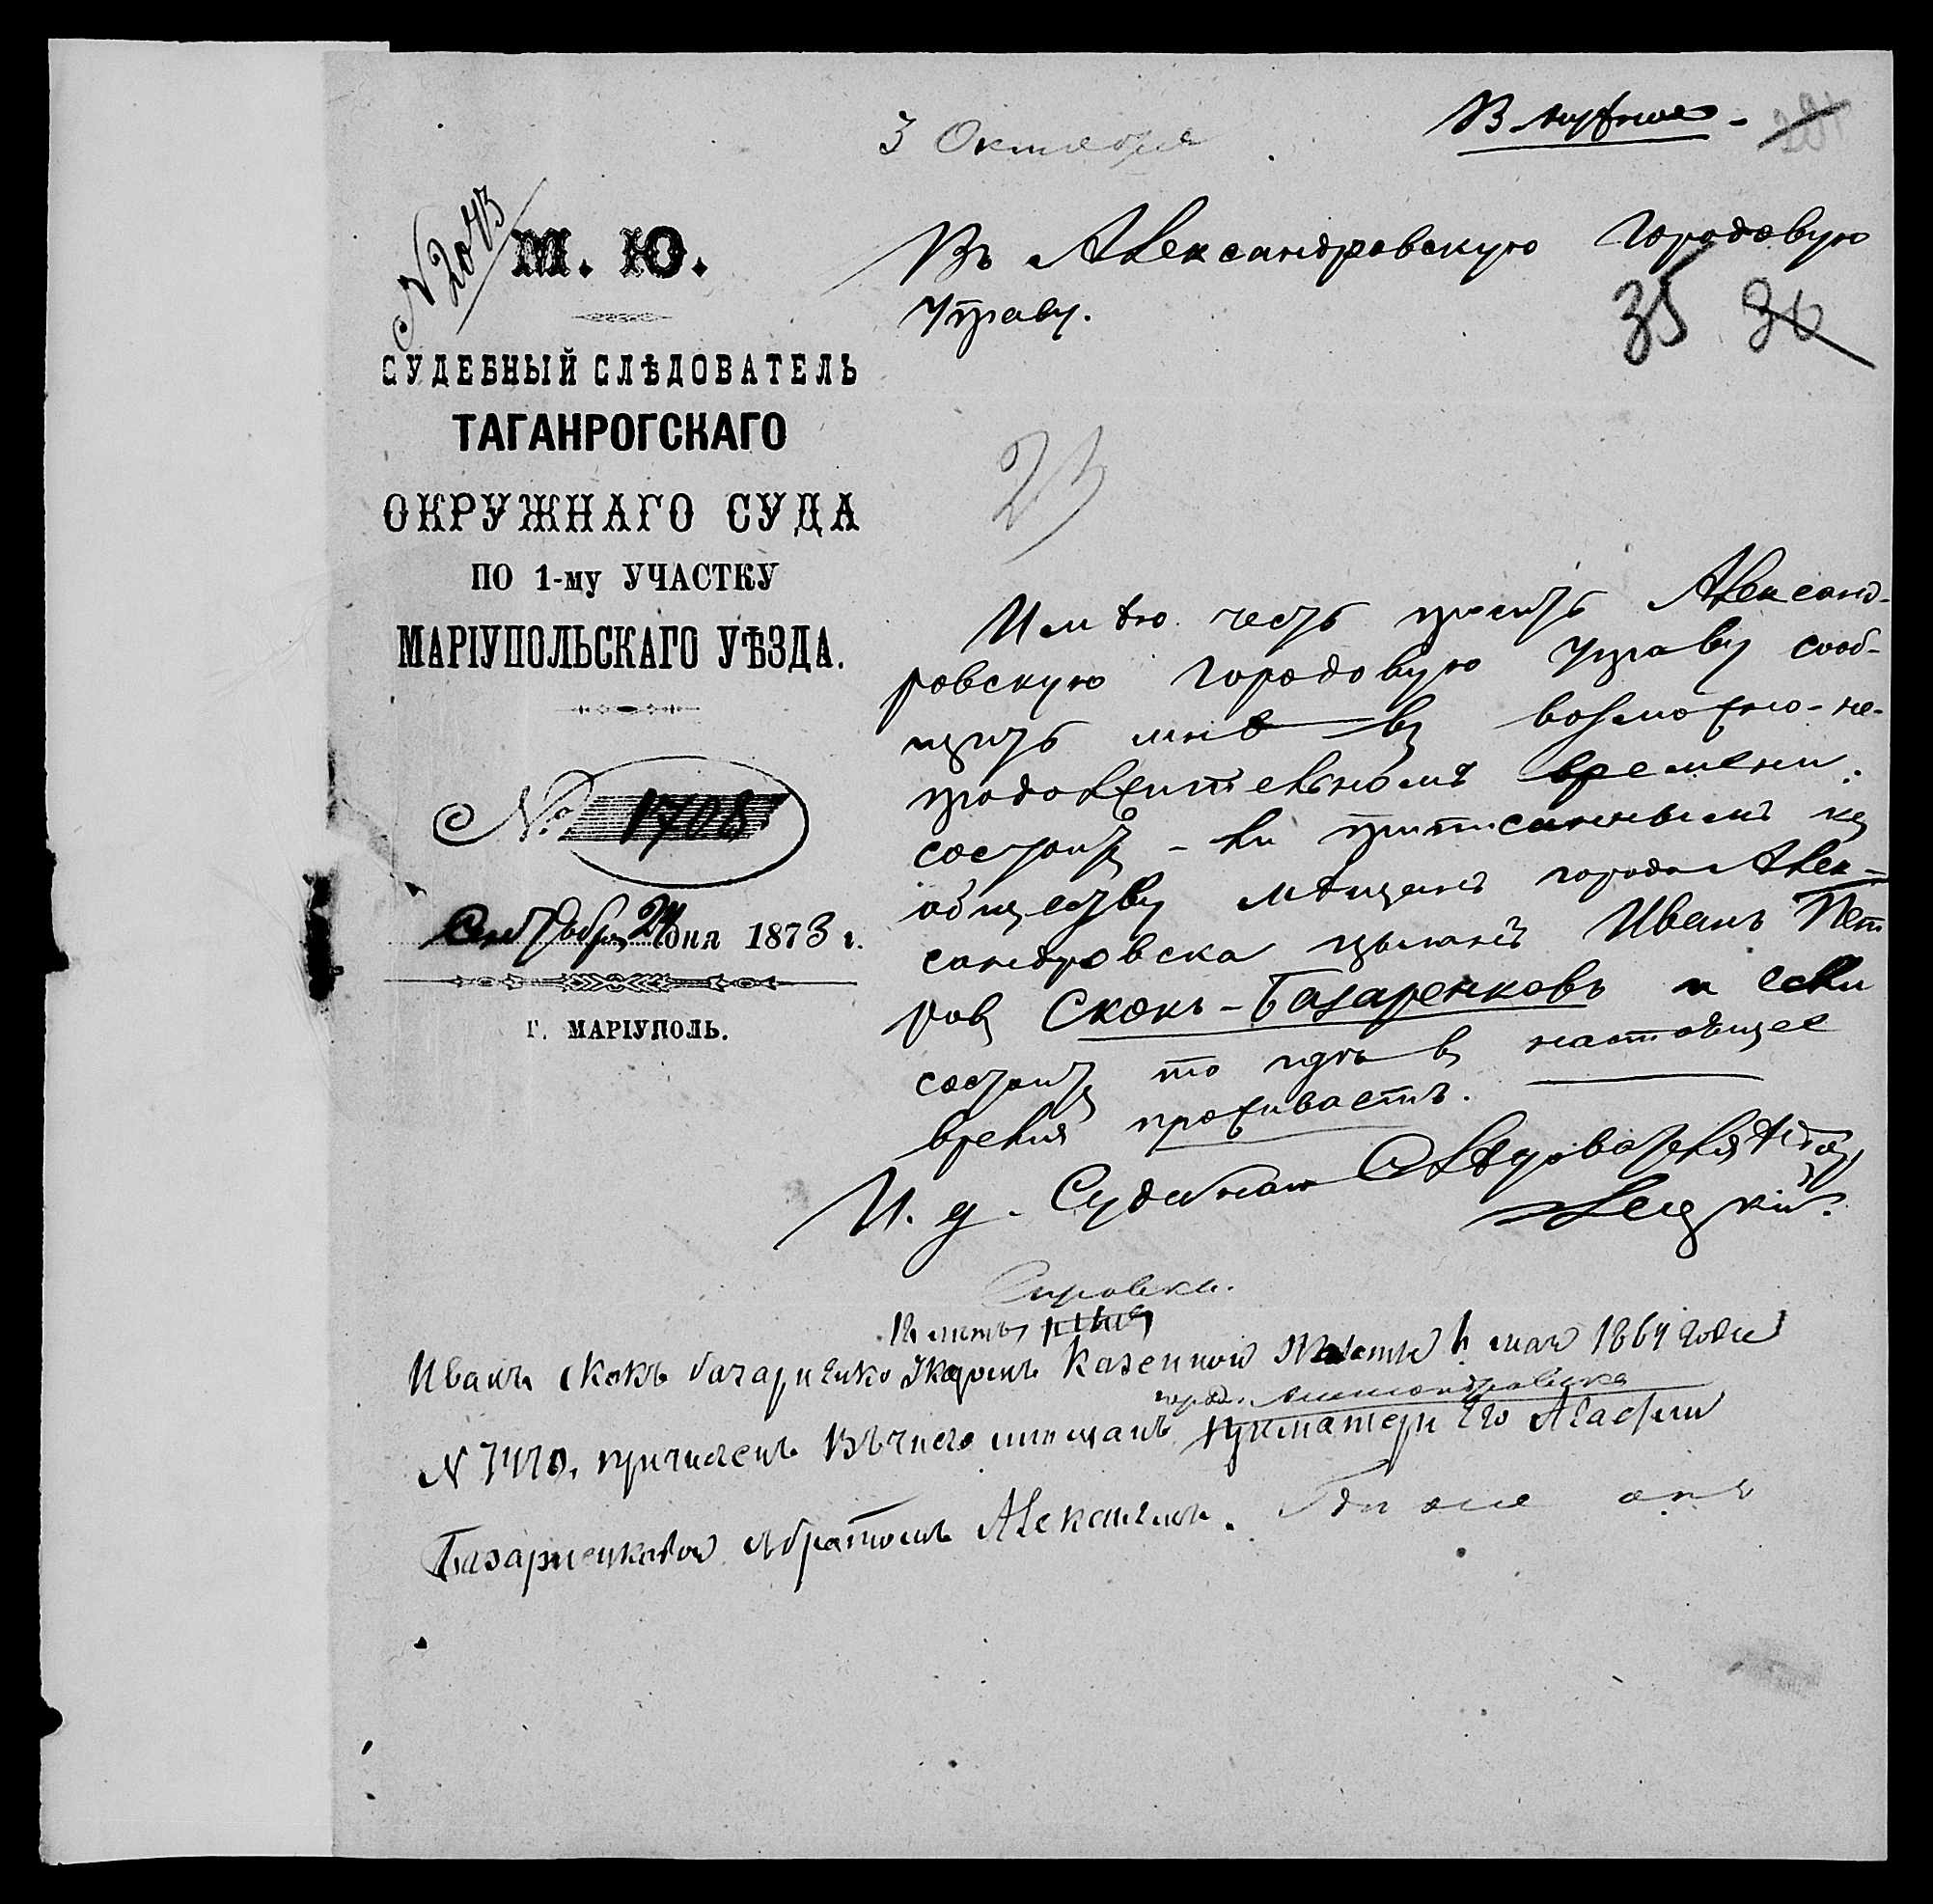 3 Октября
№ 2043
М. Ю.
СУДЕБНЫЙ СЛѢДОВАТЕЛЬ
ТАГАНРОГСКАГО
ОКРУЖНАГО СУДА
ПО 1-му УЧАСТКУ
МАРІУПОЛЬСКАГО УѢЗДА.
№ 1708
Сентября 24 дня 1873 г.
Г. МАРІУПОЛЬ.
Въ Александровскую Городовую
Управу.
35 36
23
Имѣю честь просить Александ-
ровскую Городовую Управу сооб-
щить мнѣ въ возможно-не-
продолжительномъ времени.
состоитъ-ли приписаннымъ къ
обществу мѣщанъ города Алек-
сандровска цыганъ Иванъ Пет
ровъ Скокъ-Базаренковъ и если
состоитъ то гдѣ въ настоящее
время проживаетъ.
И. д. Судебнаго Слѣдователя
Справка.
Иванъ Скокъ Казенной Палаты мая 1864 года
города Александровска
№ 7470, причисленъ Въ число мещанъ при матери Его Агафіи
Базариенковой и братомъ Алексеемъ. Где же онъ